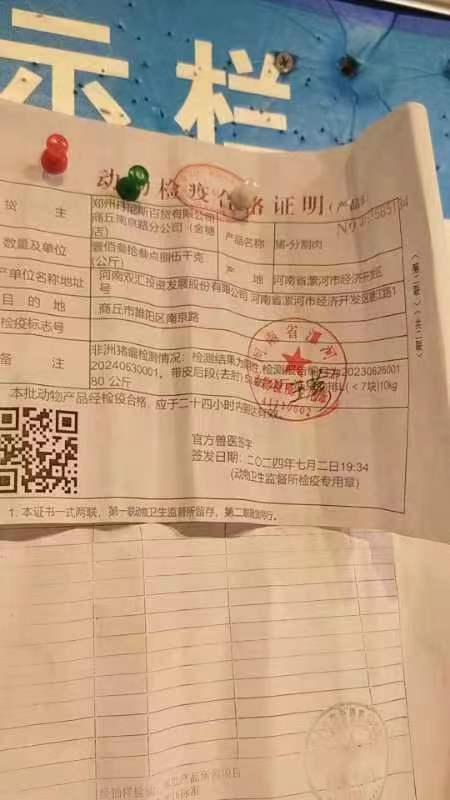 示栏
动物检疫合格证明(产品
货 主
郑州丹尼斯百货有限公司
商丘南京路分公司(金穗
店)
产品名称
猪-分割肉
数量及单位
壹佰叁拾叁点捌伍千克
(公斤)
产 地
河南省漯河市经济开发区
产单位名称地址
河南双汇投资发展股份有限公司 河南省漯河市经济开发区
号
目的地
商丘市睢阳区南京路
检疫标志号
备 注
非洲猪瘟检测情况:检测结果为阴性,检测报告编号为20230626001
20240630001,带皮后段(去肘)
(<7块)10kg
80公斤
本批动物产品经检疫合格,应于二十四小时内到达有效。
官方兽医签字
签发日期:二〇二四年七月二日19:34
(动物卫生监督所检疫专用章)
1. 本证书一式两联,第一联动物卫生监督所留存,第二联随货同行。
河南省漯河